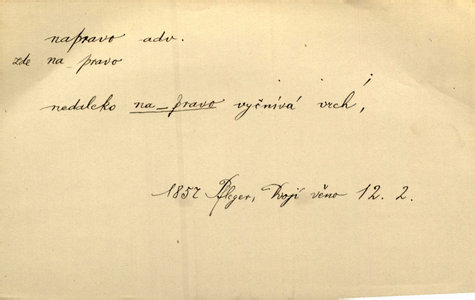 napravo adv.
zde na_pravo
nedaleko na_pravo vyčnívá vrch,
1857 Pfleger, Dvojí věno 12. 2.